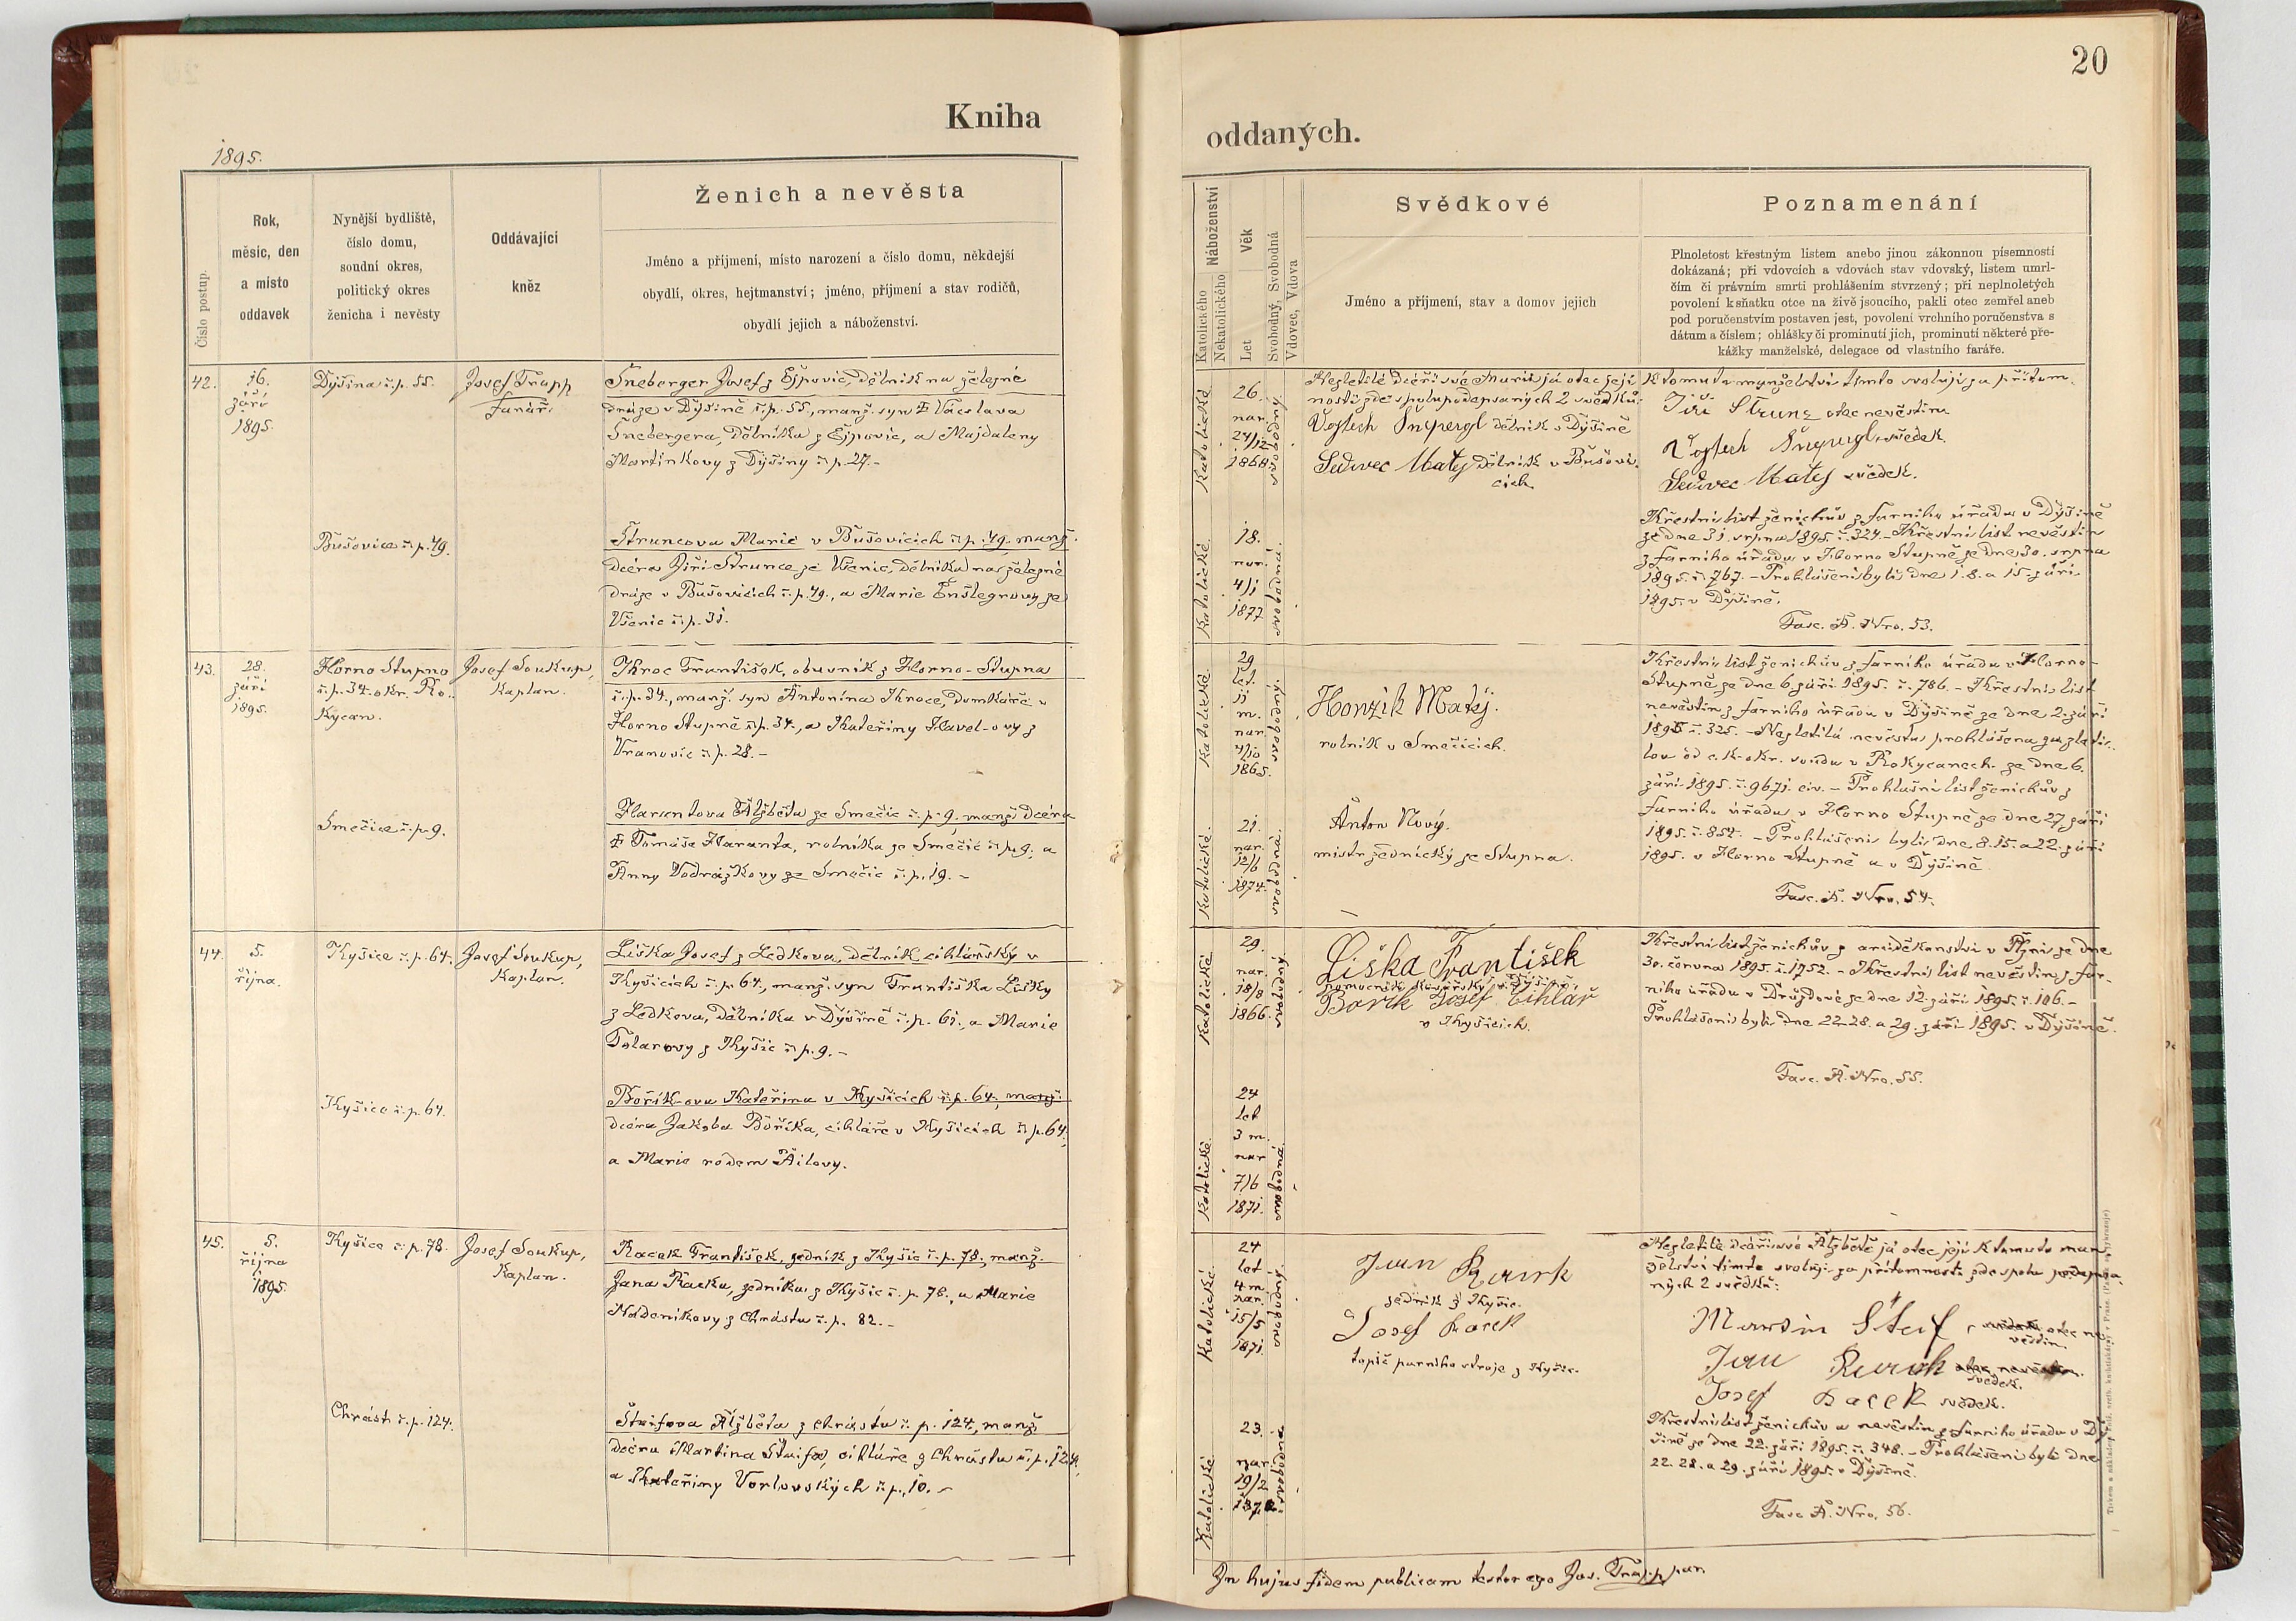 20
Kniha
oddaných.
1895.
Číslo postup.
Rok,
měsíc, den
a místo
oddavek
Nynější bydliště,
číslo domu,
soudní okres,
politický okres
ženicha i nevěsty
Oddávající
kněz
Ženich a nevěsta
Jméno a příjmení, místo narození a číslo domu, někdejší
obydlí, okres, hejtmanství; jméno, příjmení a stav rodičů,
obydlí jejich a náboženství.
42.
16.
září
1895.
Dýšina č. p. 55.
Josef Trapp
farář.
Šneberger Josef z Ejpovic, dělník na železné
dráze v Dýšině č. p. 55, manž. syn ‡ Václava
Šnebergera, dělníka z Ejpovic, a Majdaleny
Martínkovy z Dýšiny č. p. 27.-
Bušovice č. p. 49.
Štruncova Marie v Bušovicích č. p. 49. manž.
dcéra Jiří Štrunce ze Všenic, dělníka na železné
dráze v Bušovicích č. p. 49., a Marie
Všenic č. p. 31.
43.
28.
září
1895.
Horno Stupno
č. p. 34. okr. Ro-
kycan.
Josef Soukup,
kaplan.
Kroc František, obuvník z Horno-Stupna
č. p. 34., manž. syn Antonína Kroce, domkáře v
Horno Stupně č. p. 34., a Kateřiny Havel-ovy z
Vranovic č. p. 28.-
Smečice č. p. 9.
Alžběta ze Smečic č. p. 9, manž. dcéra
‡ Tomáše Haranta, rolníka ze Smečic č. p. 9., a
Anny Vodrážkovy ze Smečic č. p. 19. -
44.
5.
října.
Kyšice č. p. 64.
Josef Soukup,
kaplan.
Liška Josef z Ledkova, dělník cihlářský v
Kyšicích č. p. 64., manž. syn Františka Lišky
z Ledkova, dělníka v Dýšině č. p. 61., a Marie
Tolarovy z Kyšic č. p. 9. -
Kyšice č. p. 64.
Bořík-ova Kateřina v Kyšicích č. p. 64., manž.
dcéra Jakoba Boříka, cihláře v Kyšicích č. p. 64.,
a Marie rodem
45.
5.
října
1895.
Kyšice č. p. 78.
Josef Soukup,
kaplan.
Racek František, zedník z Kyšic č. p. 78., manž.
Jana Racka, zedníka z Kyšic č. p. 78., a Marie
z Chrástu č. p. 82. -
Chrást č. p. 124.
Štaifova Alžběta z Chrástu č. p. 124, manž.
dcéra Martina Štaifa, cihláře z Chrástu č. p. 124.,
a Kateřiny Vorlovských č. p. 10. -
Náboženství
Katolického
Nekatolického
Věk
Let
Svobodný, Svobodná
Vdovec, Vdova
Svědkové
Jméno a příjmení, stav a domov jejich
Poznamenání
Plnoletost křestným listem anebo jinou zákonnou písemností
dokázaná; při vdovcích a vdovách stav vdovský, listem umrl-
čím či právním smrti prohlášením stvrzený; při neplnoletých
povolení k sňatku otce na živě jsoucího, pakli otec zemřel aneb
pod poručenstvím postaven jest, povolení vrchního poručenstva s
dátum a číslem; ohlášky či prominutí jich, prominutí některé pře-
kážky manželské, delegace od vlastního faráře.
Katolické
26.
nar.
24/12
1868
svobodný.
Nezletilé dcéři své Marii já otec její
nosti zde spolupodepsaných 2 svědků:
Vojtech Šnepergl dělník v Dýšině
Sedivec Matej dělník v Bušovi-
cích.
k tomuto manželství tímto svoluji za přítom-
Jiří Štrunz otec nevěstin
Vojtech Šnepergl svědek.
Sedivec Matej svědek.
Katolické.
18.
nar.
4/1
1877
svobodná.
Křestní list ženichův z farního úřadu v Dýšině
ze dne 31. srpna 1895 č. 324. - Křestní list nevěstin
z farního úřadu v Horno Stupně ze dne 30. srpna
1895. č. 767. - Prohlášeni byli dne 1. 8. a 15. září
1895. v Dýšině.
Fasc. A. Nro. 53.
Katolické
29
let.
11
m.
nar.
4/10
1865.
svobodný.
Honzík Matěj.
rolník v Smečicích.
Křestní list ženichův z farního úřadu v Horno-
Stupně ze dne 6. září 1895. č. 786. - Křestní list
nevěstin z farního úřadu v Dýšině ze dne 2. září
1895 č. 325. - Nezletilá nevěsta prohlášena za zleti-
lou od c. k. okr. soudu v Rokycanech ze dne 6.
září 1895. č. 9671. civ. - Prohlášní list ženichův z
farního úřadu v Horno Stupně ze dne 27 září
1895. č. 852. - Prohlášeni byli dne 8. 15. a 22. září
1895. v Horno Stupně a v Dýšině.
Fasc. A. Nro. 54.
Katolické.
21.
nar.
12/6
1874.
svobodná.
Anton Nový.
mistr zednický ze Stupna.
Katolické
29.
nar.
18/8
1866.
svobodný
Liška František
pomocník kovářský v Dýšině,
Borik Josef Cihlař
v Kyšicích.
Křestní list ženichův z arciděkanství v Plzni ze dne
30. června 1895. č. 1752. - Křestní list nevěstin z far-
ního úřadu v Druzdově ze dne 12. září 1895. č. 106. -
Prohlášeni byli dne 22. 28. a 29. září 1895. v Dýšině.
Fasc. A. Nro. 55.
Katolické.
24
let
3 m.
nar
7/6
1871.
svobodná.
Katolické.
24
let
4 m
nar.
15/5
1871.
svobodný.
Jan Racek
zedník z Kyšic.
Josef Racek
topič parního stroje z Kyšic.
Nezletilé dcéři své Alžbětě já otec její k tomuto man-
želství tímto svoluji za přítomnosti zde spolu podepsa-
ných 2 svědků:
Martin Šteif, otec ne-
věstin.
Jan Racek
svědek.
Josef Racek svědek.
Křestní list ženichův a nevěstin z farního úřadu v Dý-
šině ze dne 22. září 1895. č. 348. - Prohlášeni byli dne
22. 28. a 29. září 1895. v Dýšině.
Fasc A. Nro. 56.
Katolické
23.
nar.
19/2
svobodná
In hujus fidem publicam testor ego Jos. Trapp par.